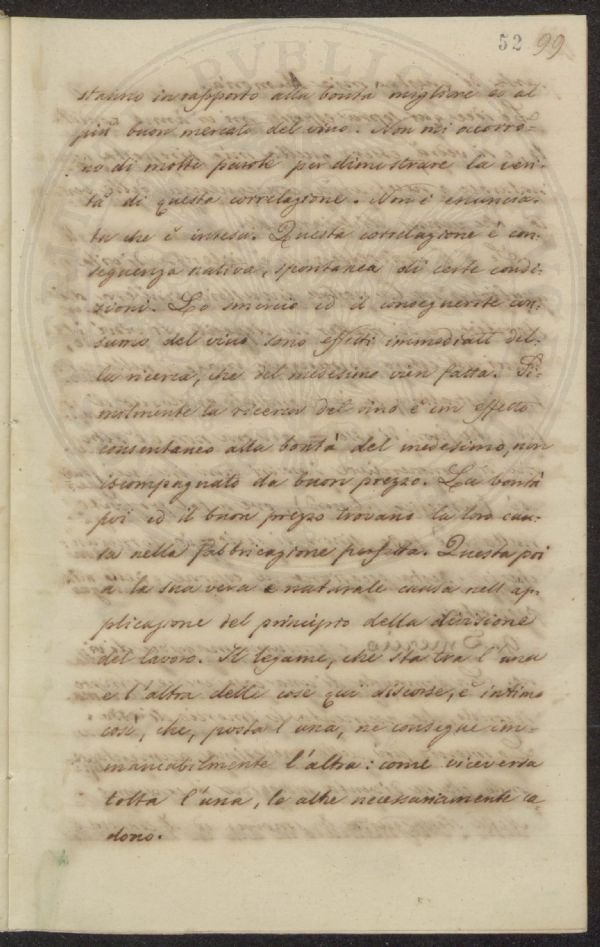 52 99
stanno in rapporto alla bontà migliore ed al
più buon mercato del vino. Non mi occorro-
no di molte parole per dimostrare la veri-
tà di questa correlazione. Non è enuncia-
ta che è intesa. Questa correlazione è con-
seguenza nativa, spontanea di certe condi-
zioni. Lo smercio ed il conseguente con-
sumo del vino sono effetti immediati del-
la ricerca, che del medesimo vien fatta. Si-
milmente la ricerca del vino è un effetto
consentaneo alla bontà del medesimo, non
iscompagnato da buon prezzo. La bontà
poi ed il buon prezzo trovano la loro cau-
sa nella fabbricazione perfetta. Questa poi
à la sua vera e naturale causa nell'ap-
plicazione del principio della divisione
del lavoro. Il legame, che sta tra l'una
e l'altra delle cose qui discorse, è intimo
così, che, posta l'una, ne consegue im-
mancabilmente l'altra: come viceversa
tolta l'una, le altre necessariamente ca
dono.